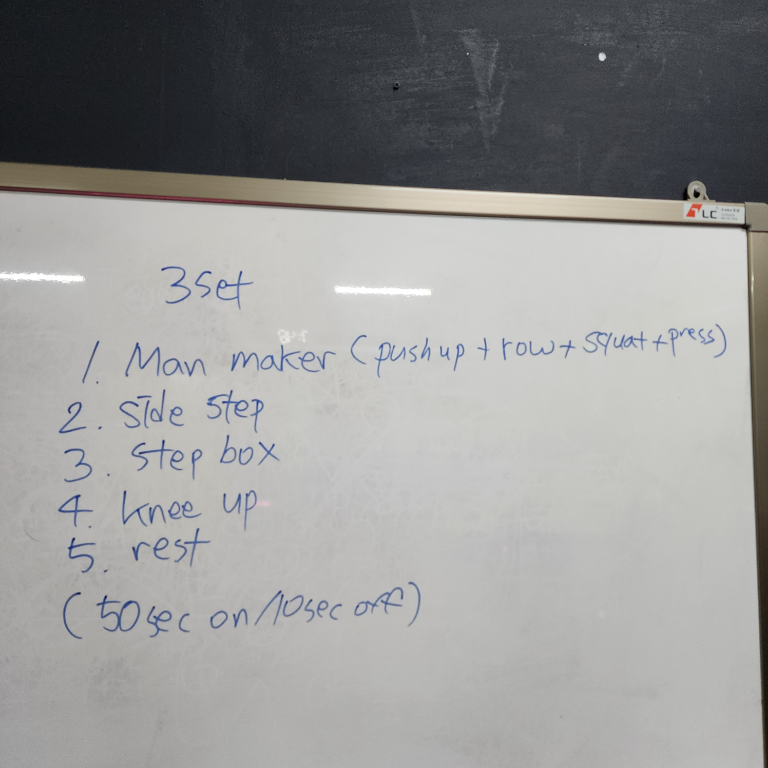 3set
1. Man maker (push up + row + squat + press)
2. side step
3. step box
4. knee up
5. rest
(50sec on/10sec off)
LC